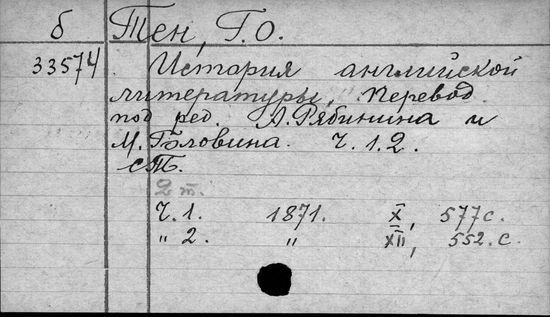 б Тен, Г.О.
33574 История английской
литературы, Перевод
под ред. А.Рябинина и
М. Головина. Ч. 1.2.
СПб.
2 т.
Ч. 1. 1871. X, 577 с.
„ 2. „ XII, 552. с.